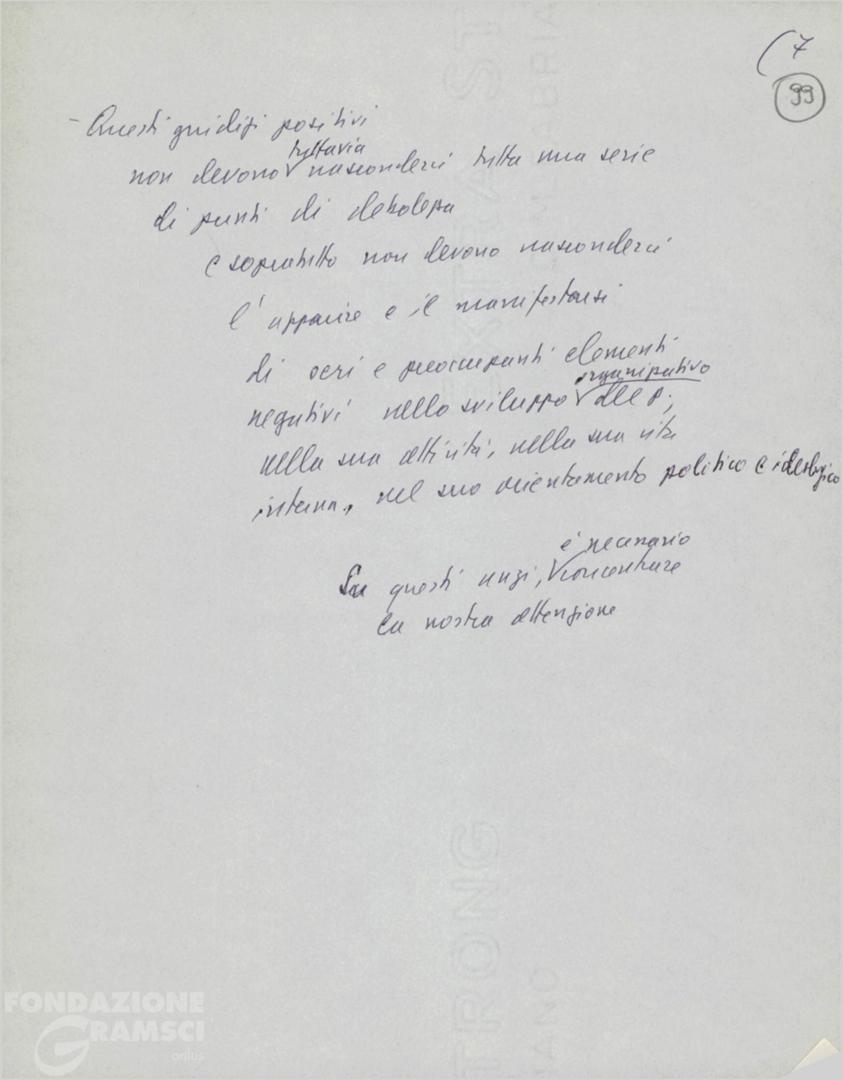 (7
99
- Questi giudizi positivi
tuttavia
non devono nasconderci tutta una serie
di punti di debolezza
e sopratutto non devono nasconderci
l'apparire e il manifestarsi
di seri e preoccupanti elementi
organizzativo
negativi nello sviluppo del P.,
nella sua attività, nella sua vita
interna, nel suo orientamento politico e ideologico
è necessario
Su questi anzi, concentrare
la nostra attenzione
FONDAZIONE
GRAMSCI
onlus